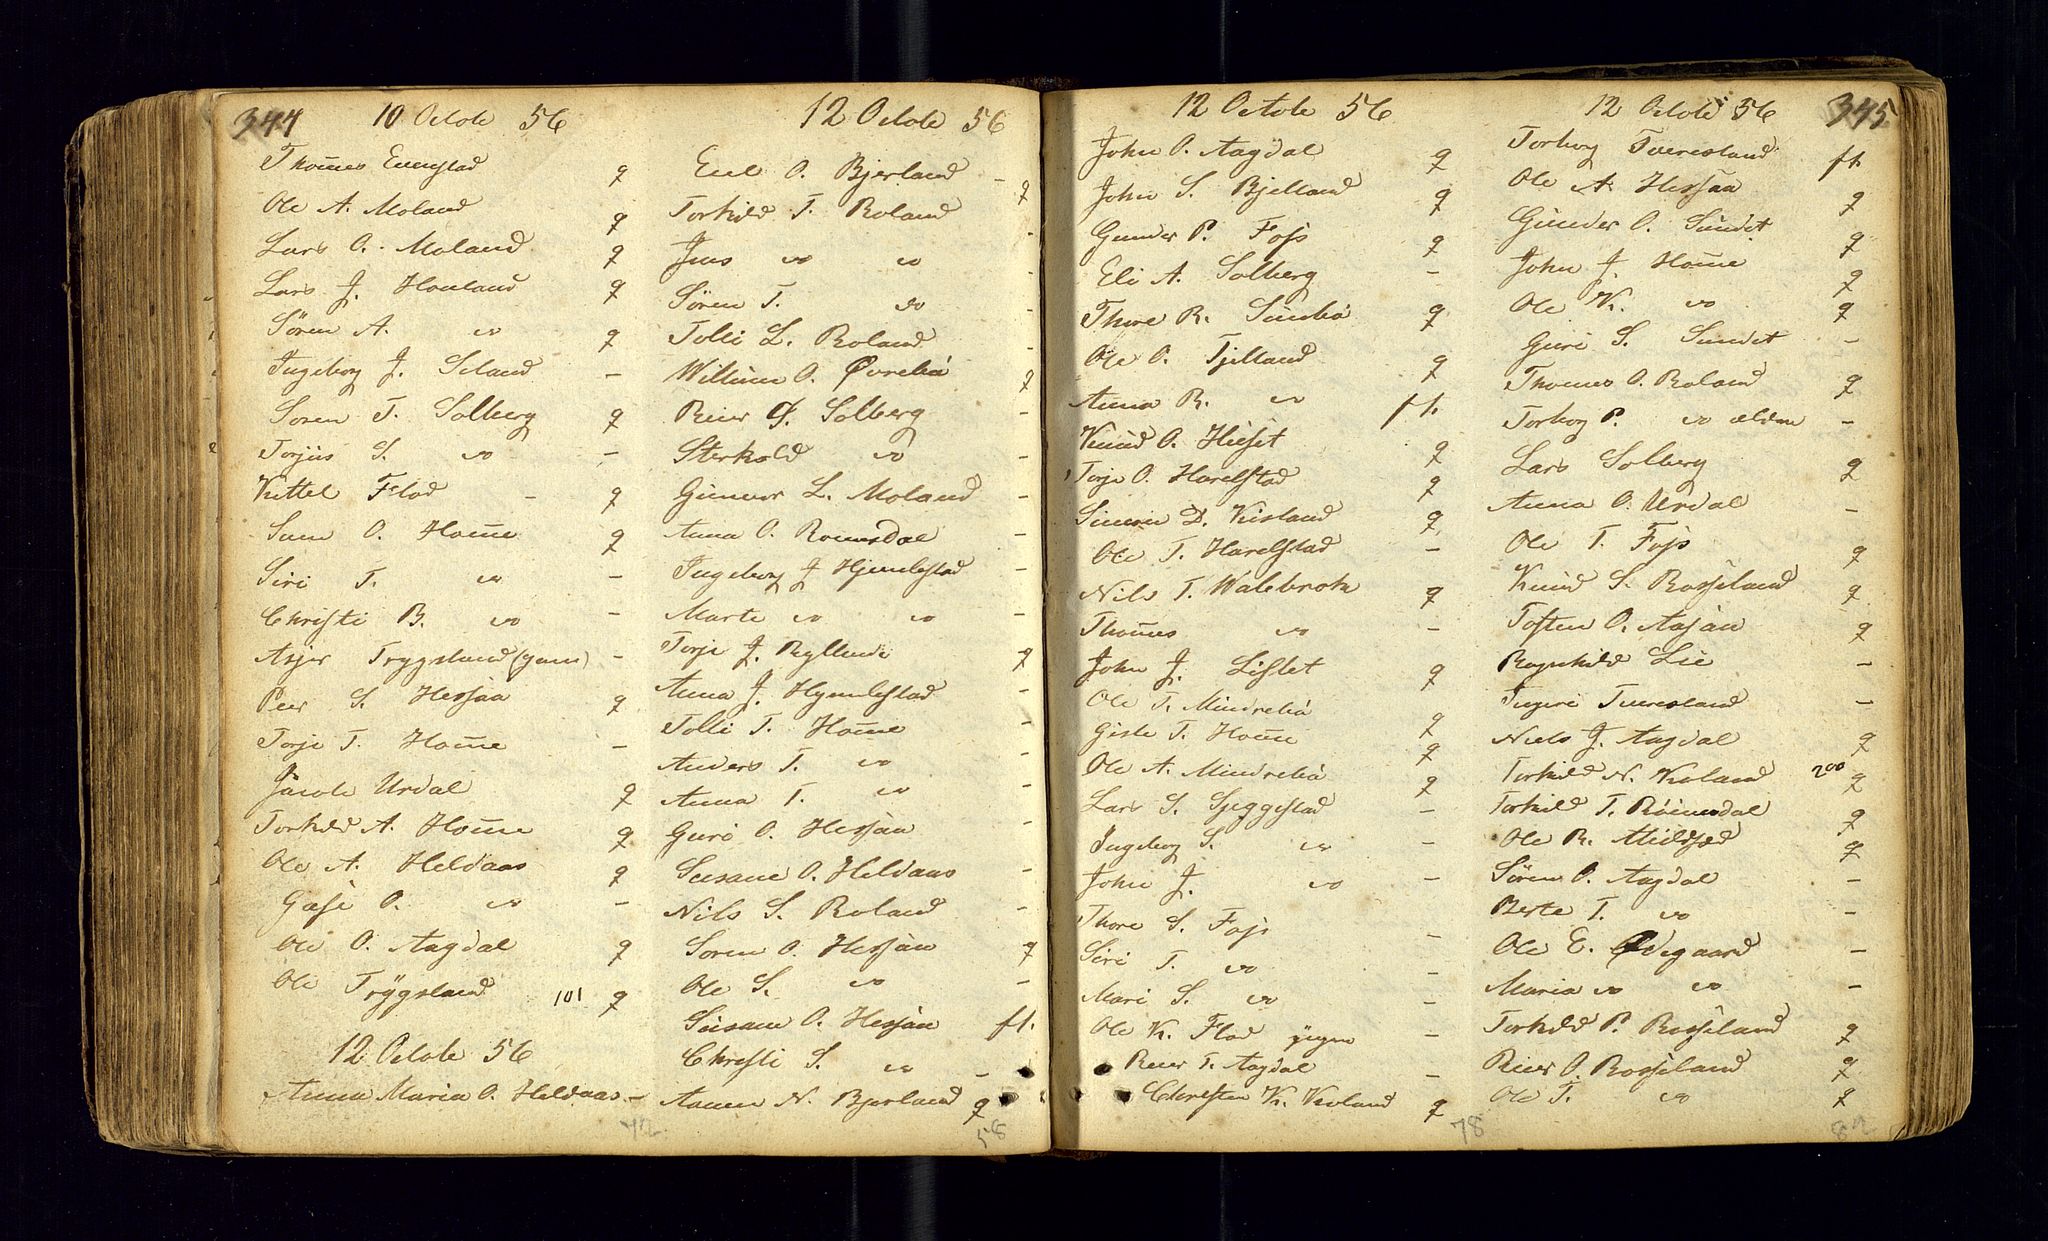 344
10 Octobr 56
Thomes Evenstad q
Ole A. Moland q
Lars O. Moland q
Lars J. Honland q
Sören A. do q
Ingeborg J. Seland -
Soren T. Solberg q
Torjus S. do -
Kittel Flad - q
Sum O. Home q
Siri T. do -
Christi B. do -
Asjer Trygsland (gam) -
Peer S. Hessaa q
Torje T. Home -
Jacob Urdal q
Torkild A. Home q
Ole A. Heldaas q
Gose O. do -
Ole O. Aagdal q
Ole Trÿgsland 101 q
12 Octobe 56
Anna Maria O. Heldaas -
72
12 Octobe 56
Enl O. Bjerland - q
Torkild T. Roland -
Jens do do -
Sören T. do -
Tolli L. Roland -
Willum O. Øvrebö q
Reier O. Solberg -
Sterkold do -
Gunner L. Moland -
Anna O. Romsdal -
Ingeborg J. Hjemlestad -
Marte do do -
Torje J. Kyllende q
Anna J. Hjemlestad -
Tolli T. Home -
Anders T. do -
Anna T. do -
Guri O. Hessaa -
Susane O. Heldaas -
Nils S. Roland -
Soren O. Hessaa q
Ole S. do -
Susane O. Hessaa ft.
Christi S. do -
Aanen N. Bjerland q
58
12 Octobe 56
John O. Aagdal q
John S. Bjelland q
Gunder P. Foss q
Eli A. Solberg -
Thore R. Sundbö q
Ole O. Tjelland q
Anna R. do ft.
Knud O. Huset q
Torje O. Harelstad q
Simon D. Kusland q
Ole T. Harelstad -
Nils T. Walebrok q
Thomes do -
John J. Listet q
Ole T. Mindrebö q
Giske T. Home q
Ole A. Mindrebö q
Lars S. Syggestad -
Ingeborg S. do -
John J. do -
Thore S. Foss -
Siri T. do -
Mari S. do -
Ole K. Flad yngre -
Reier T. Aagdal -
Christen K. Kroland q
78
12 Octobe 56
345
Torborg Tveresland ft.
Ole A. Hessaa q
Gunder O. Sundet q
John J. Home q
Ole K. do q
Guri S. Sundet -
Thomes O. Roland q
Torborg P. do ældre -
Lars Solberg q
Anna O. Urdal -
Ole T. Foss q
Knud S. Rosseland q
Tosten O. Aasan q
Ragnhild Lie -
Ingeri Tveresland -
Niels J. Aagdal q
Torkild N. Kroland 200 q
Torkild T. Röimsdal q
Ole R. Mildsæd q
Sören O. Aagdal -
Berte T. do -
Ole E. Ødegaard -
Maria do do -
Torkild P. Rosseland q
Reier O. Rosseland q
Ole T. do q
82